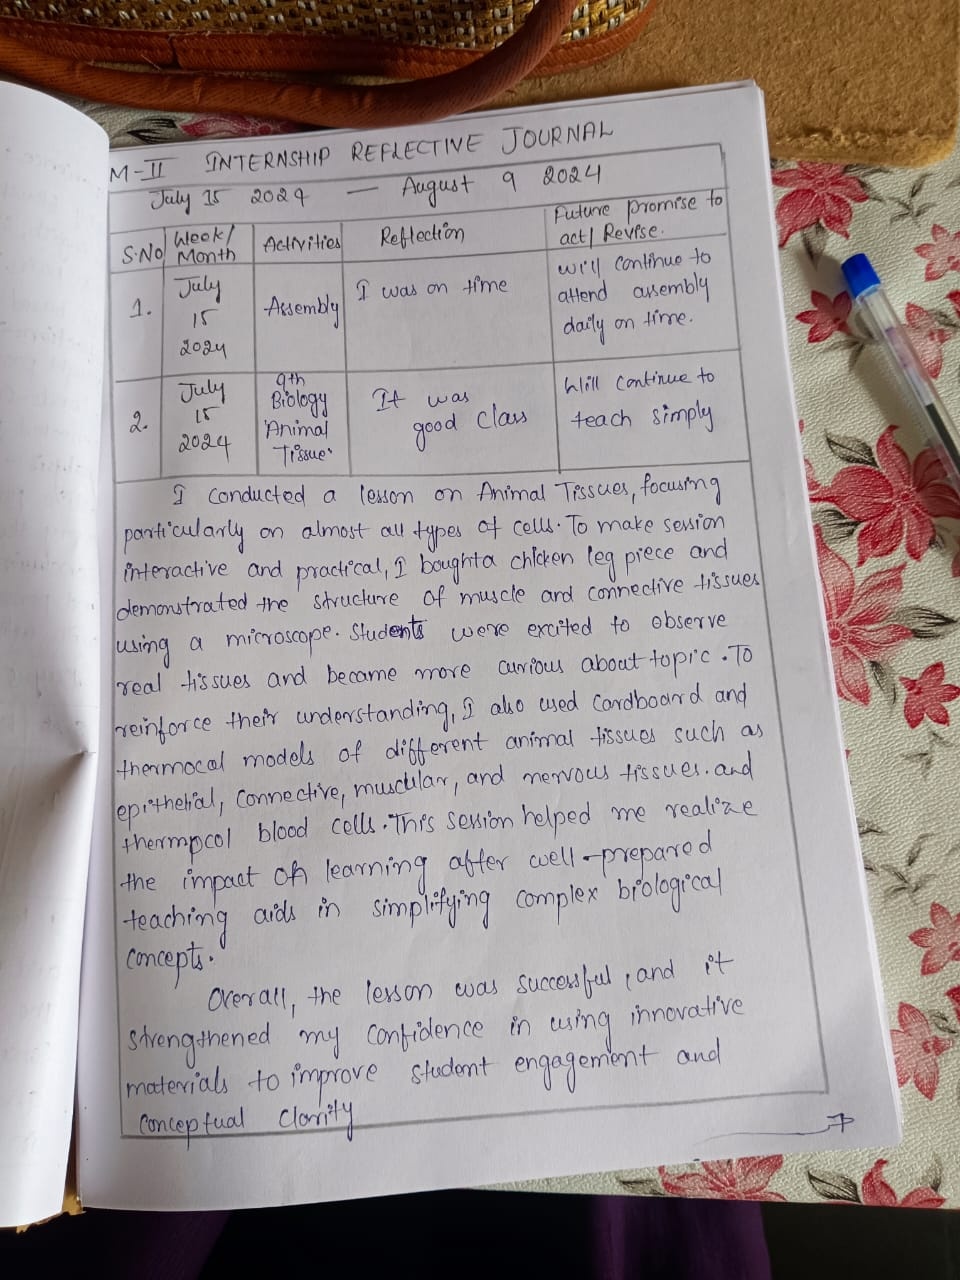 M-II INTERNSHIP REFLECTIVE JOURNAL
July 15 2024 — August 9 2024
S.No Week/Month Activities Reflection Future promise to act/Revise.
1. July 15 2024 Assembly I was on time will continue to attend assembly daily on time.
2. July 15 2024 9th Biology 'Animal Tissue' It was good class Will continue to teach simply
I conducted a lesson on Animal Tissues, focusing
particularly on almost all types of cells. To make session
interactive and practical, I boughta chicken leg piece and
demonstrated the structure of muscle and connective tissues
using a microscope. Students were excited to observe
real tissues and became more curious about topic. To
reinforce their understanding, I also used Cardboard and
thermocal models of different animal tissues such as
epithelial, connective, muscular, and nervous tissues. and
thermocol blood cells. This session helped me realize
the impact of learning after well-prepared
teaching aids in simplifying complex biological
concepts.
Overall, the lesson was successful, and it
strengthened my confidence in using innovative
materials to improve student engagement and
conceptual Clarity
7